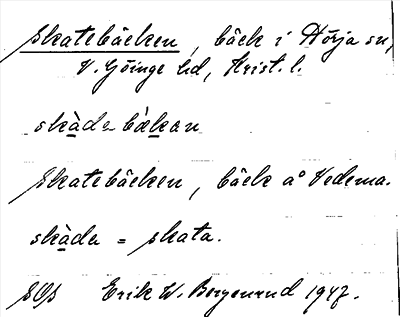 Skatebäcken, bäck i Nörja sn,
V. Göinge hd, Krist. l.
skàdebækan
Skatebäcken, bäck a° Vedema.
skàde = skata.
SOS Erik W. Bergenrud 1947.